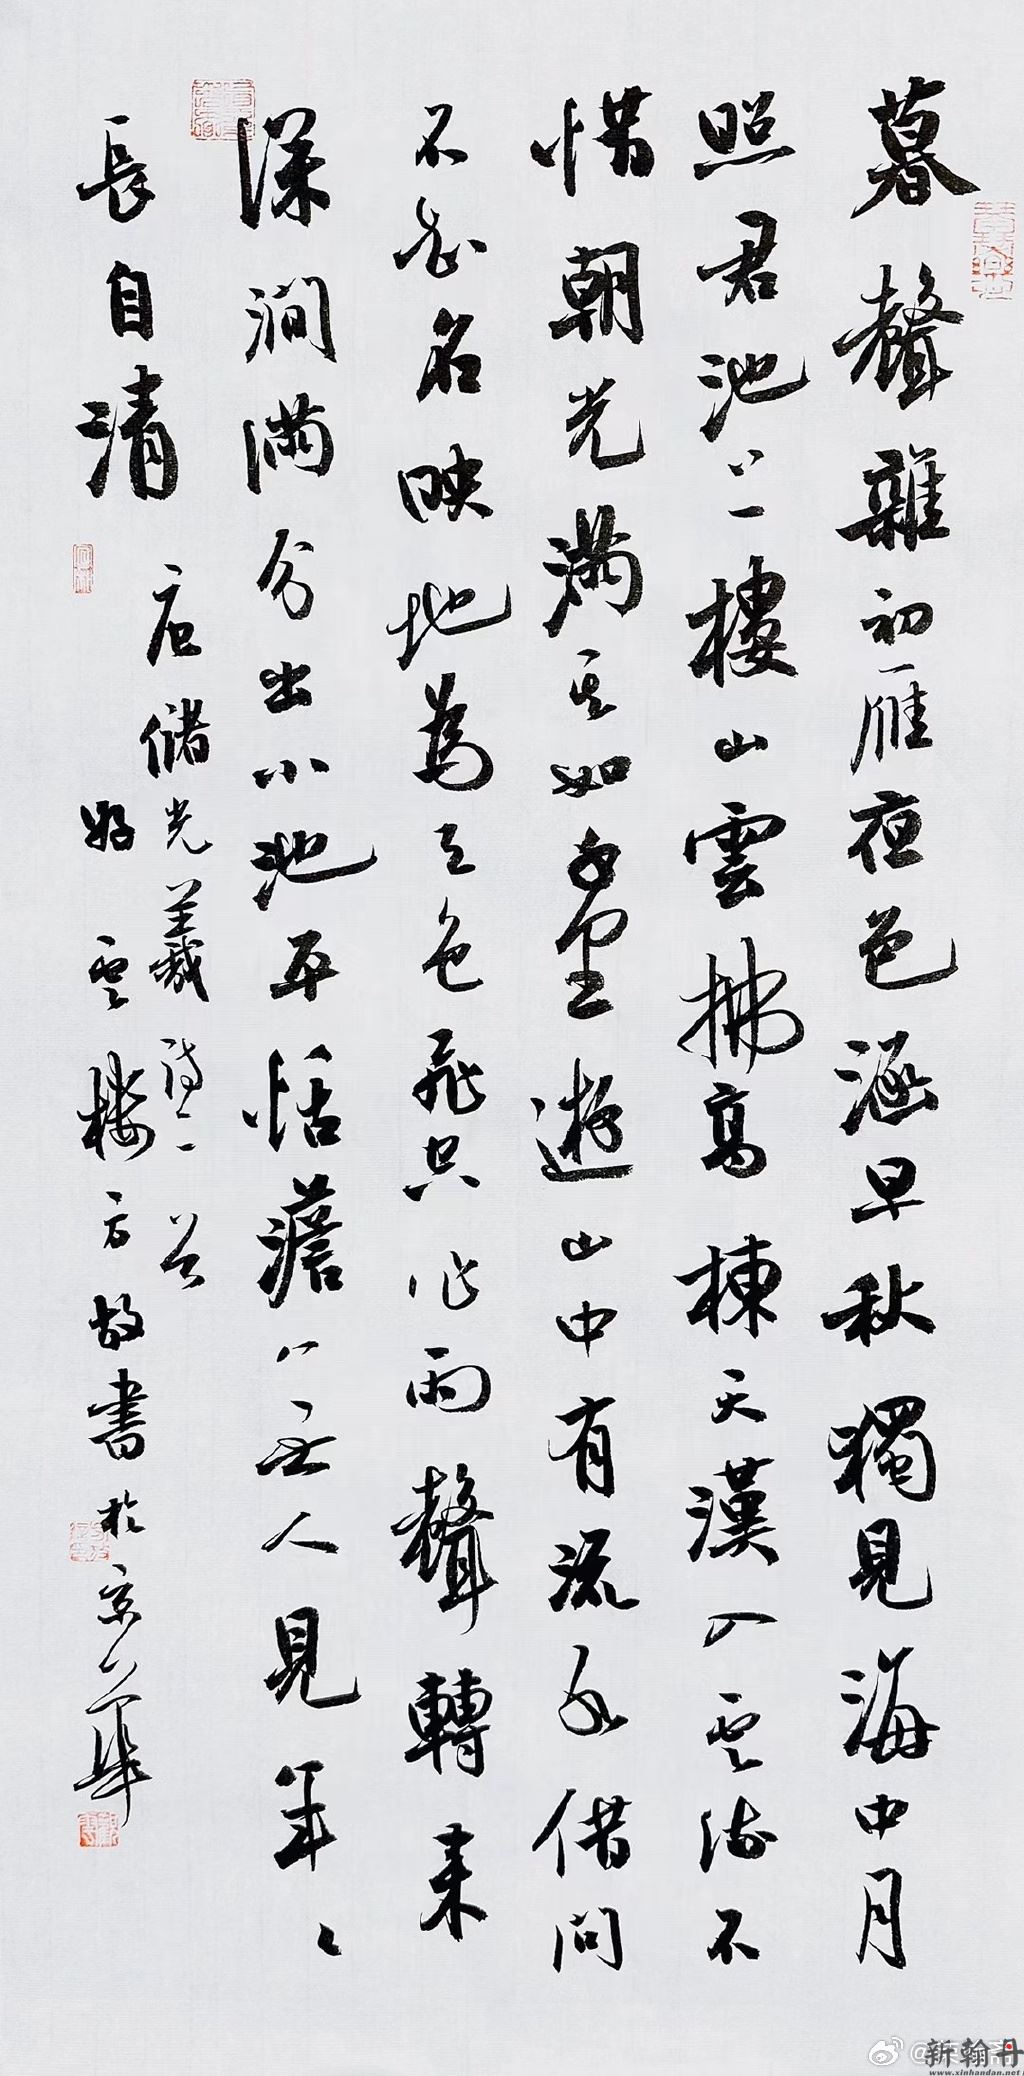 暮聲雜初雁夜色涵早秋獨見海中月
照君池上樓山雲拂高棟天漢入雲流不
惜朝光滿其如千里遊山中有流水借問
不知名映地為天色飛空作雨聲轉來
深澗滿分出小池平恬澹無人見年〻
長自清
唐儲光羲詩二首
好雲樓書於京華
新翰丹
www.xinhandan.net